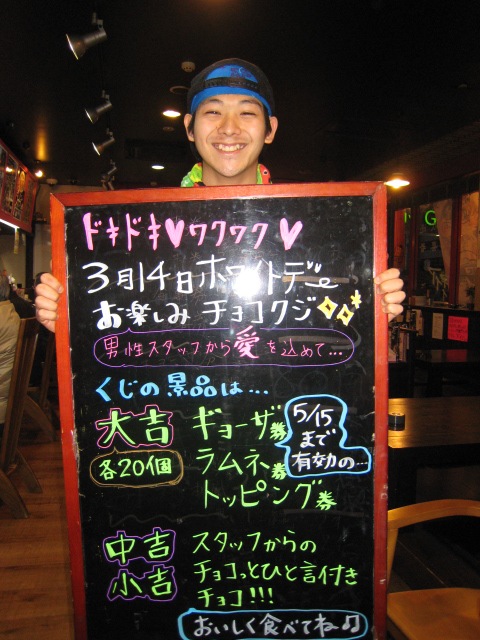 ドキドキ♥ワクワク♥
3月14日ホワイトデー
お楽しみ チョコクジ
男性スタッフから愛を込めて…
くじの景品は…
大吉 ギョーザ券
各20個 ラムネ券
トッピング券
5/15
まで
有効の…
中吉 スタッフからの
小吉 チョコっとひと言付き
チョコ!!!
おいしく食べてネ♫
G